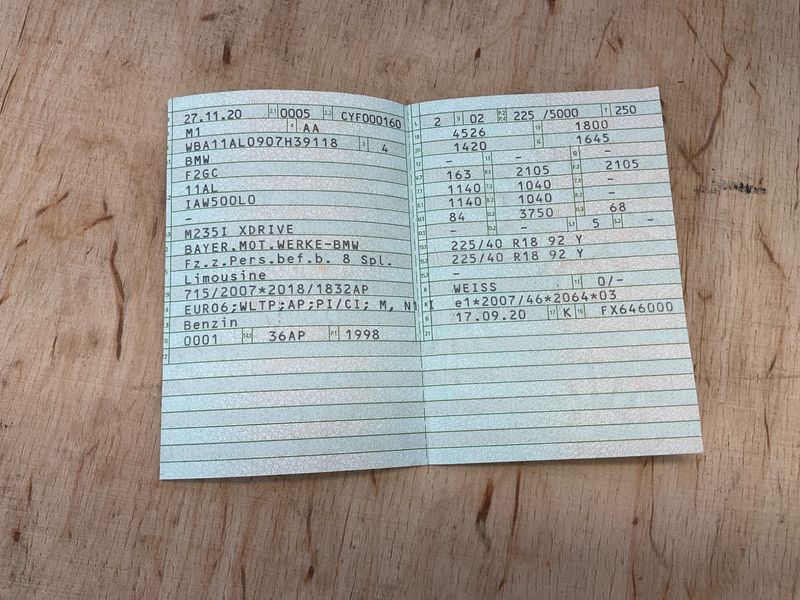 27.11.20 2.1 0005 2.2 CYF000160
M1 4 AA
WBA11AL0907H39118 3 4
BMW
F2GC
11AL
IAW500L0
-
M235I XDRIVE
BAYER.MOT.WERKE-BMW
Fz.z.Pers.bef.b. 8 Spl.
Limousine
715/2007*2018/1832AP
EURO6;WLTP;AP;PI/CI; M, N1 I
Benzin
0001 14.1 36AP P.1 1998
2 9 02 P.2 P.4 225 /5000 T 250
4526 19 1800
1420 G 1645
- 13 - Q -
163 2105 2105
1140 1040 -
1140 1040 -
84 3750 68
- - S.1 5 S.2 -
225/40 R18 92 Y
225/40 R18 92 Y
-
WEISS 11 0/-
e1*2007/46*2064*03
17.09.20 17 K 16 FX646000